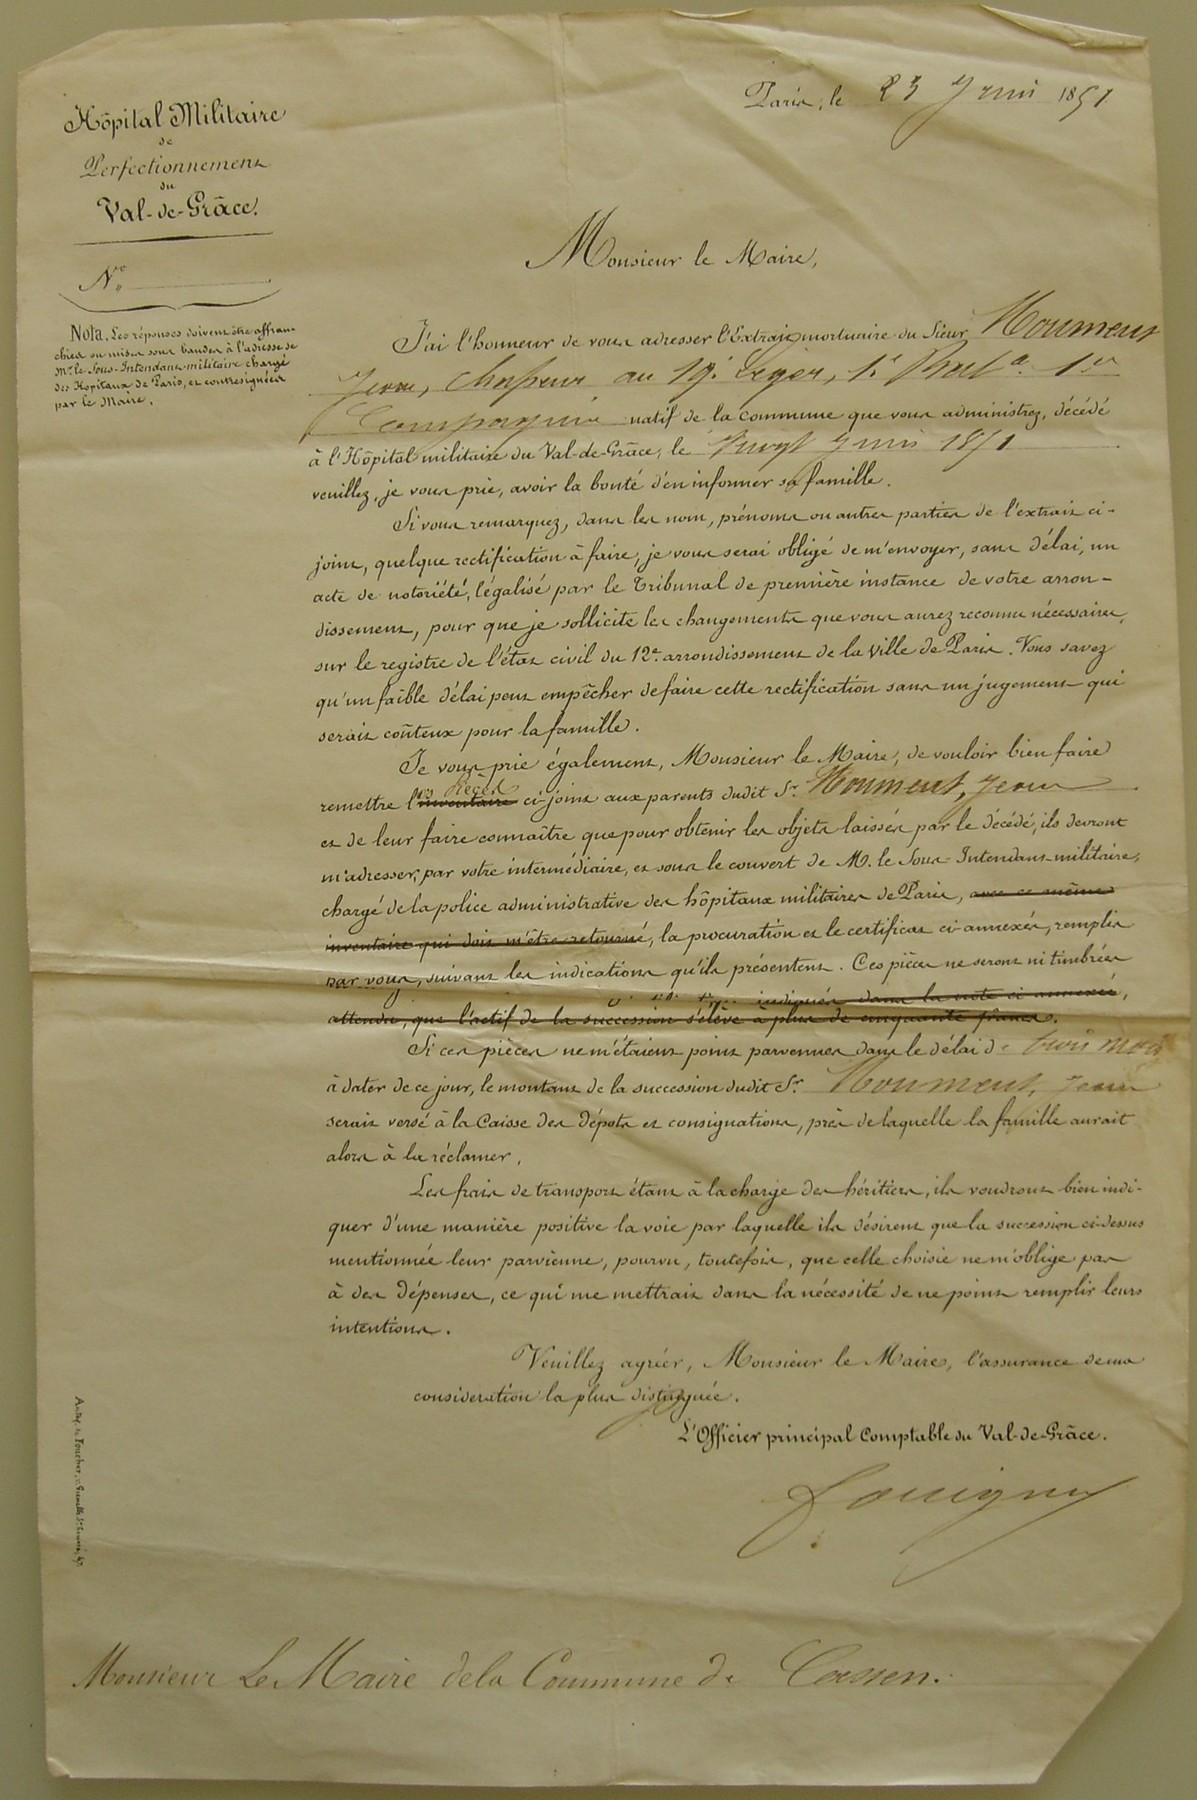 Hôpital Militaire
de
Perfectionnement
du
Val-de-Grâce.
N.º
Nota. Les réponses doivent être affran-
chies ou mises sous bandes à l'adresse de
Mr. le Sous-Intendant militaire chargé
des Hôpitaux de Paris, et contresignées
par le Maire.
Paris, le 23 Juin 1851
Monsieur le Maire,
J'ai l'honneur de vous adresser l'Extrait mortuaire du Sieur Moumeus
Jean, Chasseur au 19e Léger, 1er Bat. 1re
Compagnie natif de la commune que vous administrez, décédé
à l'Hôpital militaire du Val-de-Grâce, le Vingt Juin 1851
veuillez, je vous prie, avoir la bonté d'en informer sa famille.
Si vous remarquez, dans les nom, prénoms ou autres parties de l'extrait ci-
joint, quelque rectification à faire, je vous serai obligé de m'envoyer, sans délai, un
acte de notoriété, légalisé par le Tribunal de première instance de votre arron-
dissement, pour que je sollicite les changements que vous aurez reconnu nécessaires,
sur le registre de l'état civil du 12e. arrondissement de la ville de Paris. Vous savez
qu'un faible délai peut empêcher de faire cette rectification sans un jugement qui
serait coûteux pour la famille.
Je vous prie également, Monsieur le Maire, de vouloir bien faire
remettre les pièces inventaire ci-joint aux parents dudit Sr. Moumeus, Jean
et de leur faire connaître que pour obtenir les objets laissés par le décédé, ils devront
m'adresser, par votre intermédiaire, et sous le couvert de M. le Sous-Intendant militaire,
chargé de la police administrative des hôpitaux militaires de Paris, avec ce même
inventaire qui doit m'être retourné, la procuration et le certificat ci-annexés, remplis
par vous, suivant les indications qu'ils présentent. Ces pièces ne seront ni timbrées
indiquées dans la note ci-annexée,
attendu, que l'actif de la succession s'élève à plus de cinquante francs.
Si ces pièces ne m'étaient point parvenues dans le délai de trois mois
à dater de ce jour, le montant de la succession dudit Sr. Moumeus, Jean
serait versé à la Caisse des dépôts et consignations, près de laquelle la famille aurait
alors à la réclamer.
Les frais de transport étant à la charge des héritiers, ils voudront bien indi-
quer d'une manière positive la voie par laquelle ils désirent que la succession ci-dessus
mentionnée leur parvienne, pourvu, toutefois, que celle choisie ne m'oblige pas
à des dépenses, ce qui me mettrait dans la nécessité de ne point remplir leurs
intentions.
Veuillez agréer, Monsieur le Maire, l'assurance de ma
considération la plus distinguée.
L'Officier principal Comptable du Val-de-Grâce.
Monsieur Le Maire de la Commune de Cassen.